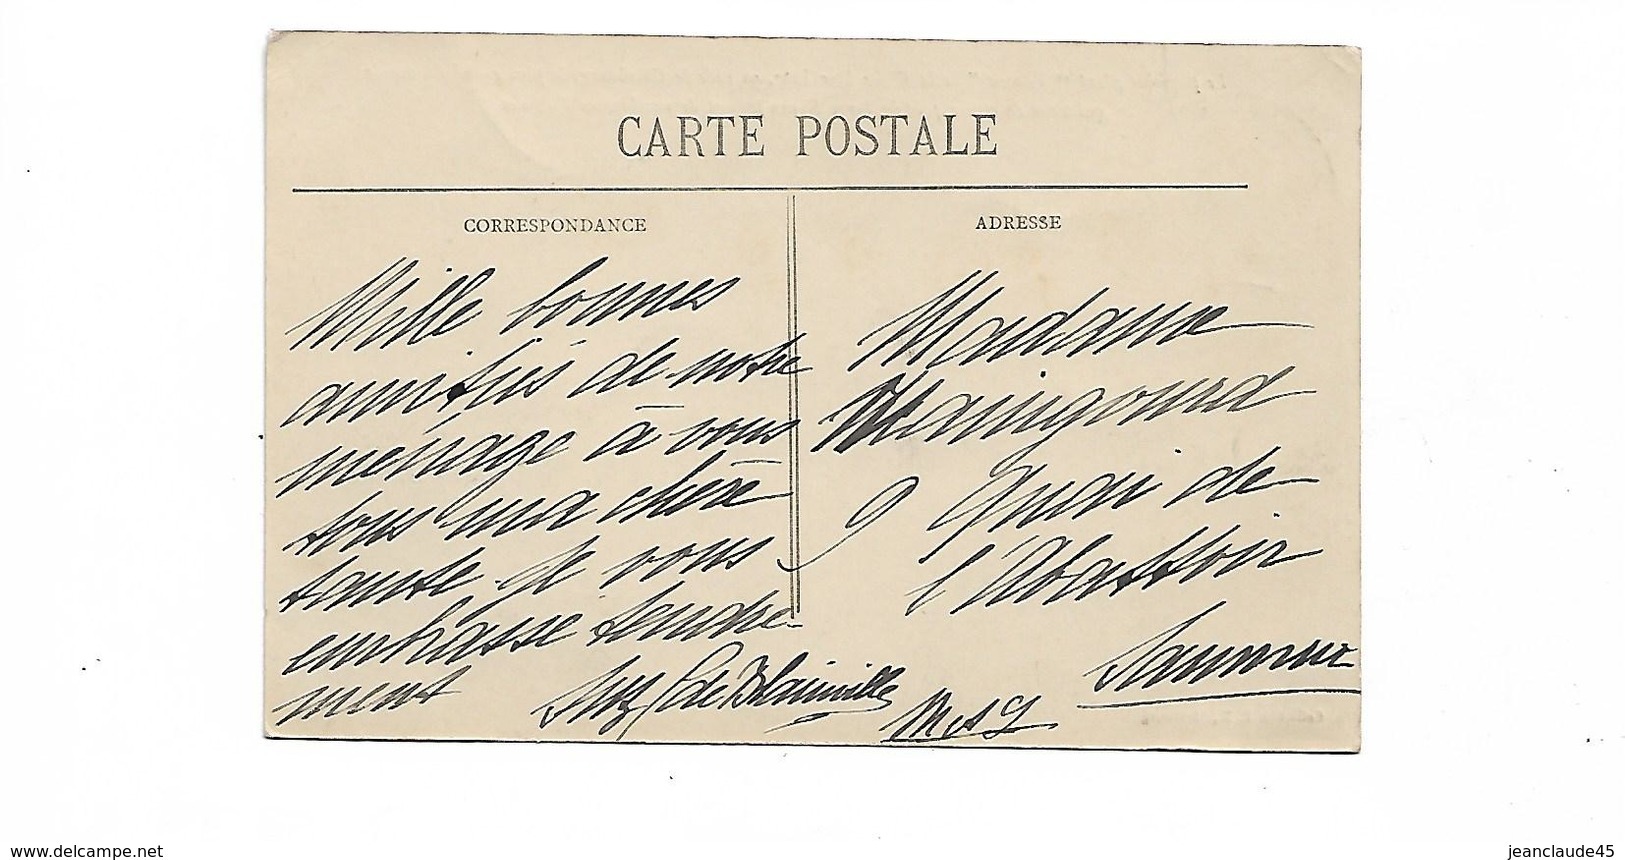 CARTE POSTALE
CORRESPONDANCE
Mille bonnes
amitiés de notre
ménage à vous
tous ma chère
tante. Je vous
embrasse tendre-
ment
Suz de Blainville
ADRESSE
Madame
Maingourd
9 Quai de
l'Abattoir
Saumur
M & L
www.delcampe.net
jeanclaude45